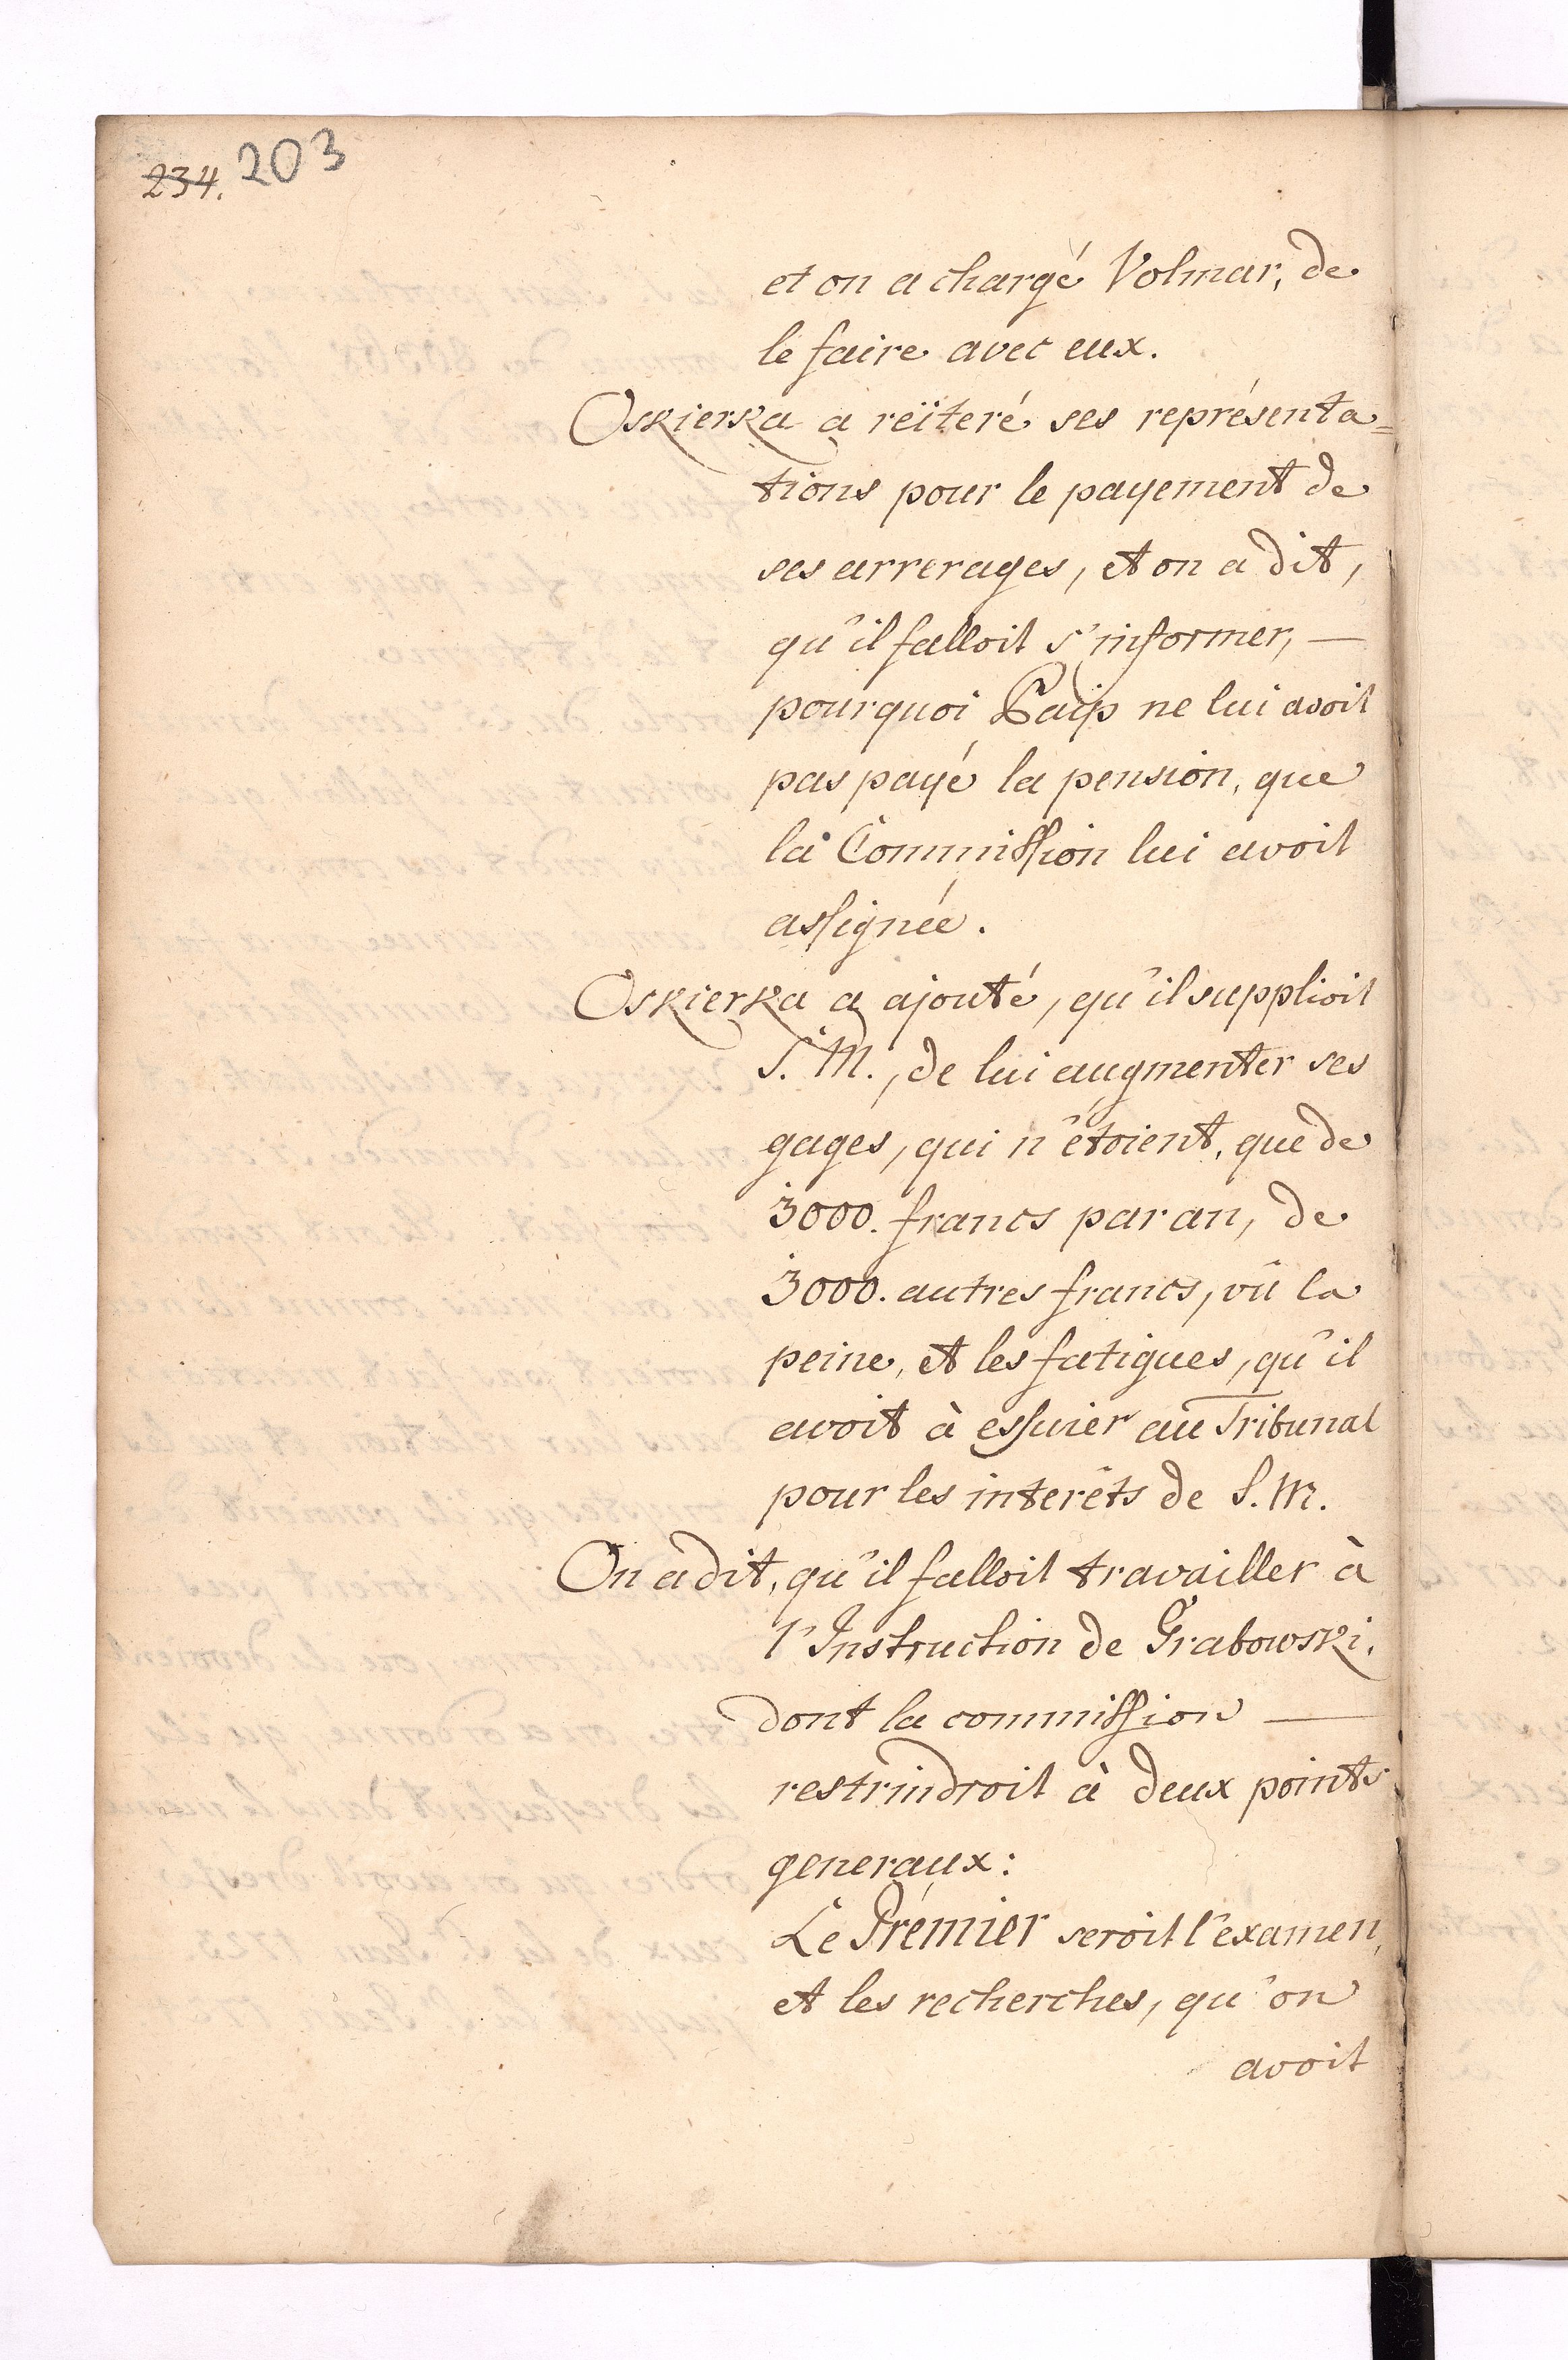 234. 203
et on a chargé Volmar, de
le faire avec eux.
Oskierka a reïteré ses représenta=
tions pour le payement de
ses arrerages, et on a dit,
qu'il falloit s'informer, —
pourquoi ne lui avoit
pas payé la pension, que
la Commission lui avoit
assignée.
Oskierka a ajouté, qu'il supplioit
S. M., de lui augmenter ses
gages, qui n'étoient, que de
3000. francs par an, de
3000. autres francs, vû la
peine, et les fatigues, qu'il
avoit à essuier au Tribunal
pour les interêts de S. M.
On a dit, qu'il falloit travailler à
l'Instruction de Grabowski,
dont la commission —
restrindroit à deux points
generaux:
Le Prémier seroit l'examen,
et les recherches, qu'on
avoit